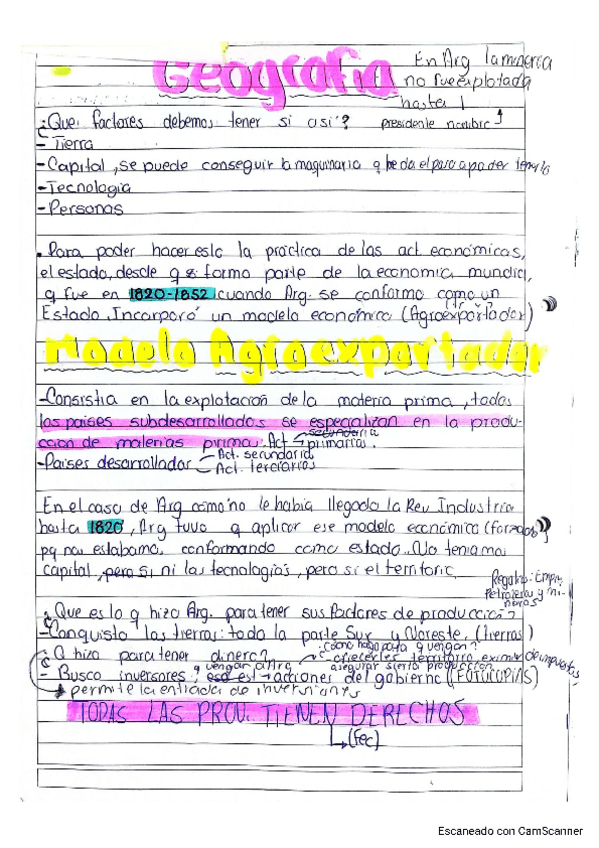 Geografia
En Arg la mineria
no fue explotada
hasta 1
presidente nombre
¿Que factores debemos tener si o si?
- Tierra
- Capital, se puede conseguir la maquinaria q he da el paso a poder
- Tecnologia
- Personas
• Para poder hacer esto la práctica de las act económicas,
el estado, desde q se formo parte de la economia mundial,
q fue en 1820-1852 cuando Arg. se conformo como un
Estado. Incorporó un modelo económico (Agroexportador)
Modelo Agroexportador
- Consistia en la explotación de la materia prima, todos
los paises subdesarrollados se especializan en la produ-
ccion de materias prima. Act primarias.
secundaria
- Paises desarrollados
Act. secundarias
Act. terciarios
En el caso de Arg como no le habia llegado la Rev Industria
hasta 1820, Arg tuvo q aplicar ese modelo económico (forzados)
pq nos estabamo conformando como estado. No teniamo
capital, pero si ni las tecnologias, pero si el territorio.
Regalias: Empre
Petroleras y mi-
neras
¿Que es lo q hizo Arg. para tener sus factores de producción?
- Conquisto las tierras: toda la parte Sur y Noreste. (tierras)
¿Q hizo para tener dinero?
¿como hago para q vengan?
ofrecerles territorio eximir de impuestos
asegurar cierta producción
- Busco inversores q vengan a Arg
eso es acciones del gobierno (FOTOCOPIAS)
permite la entrada de inversiones
TODAS LAS PROV. TIENEN DERECHOS
(Fec)
Escaneado con CamScanner